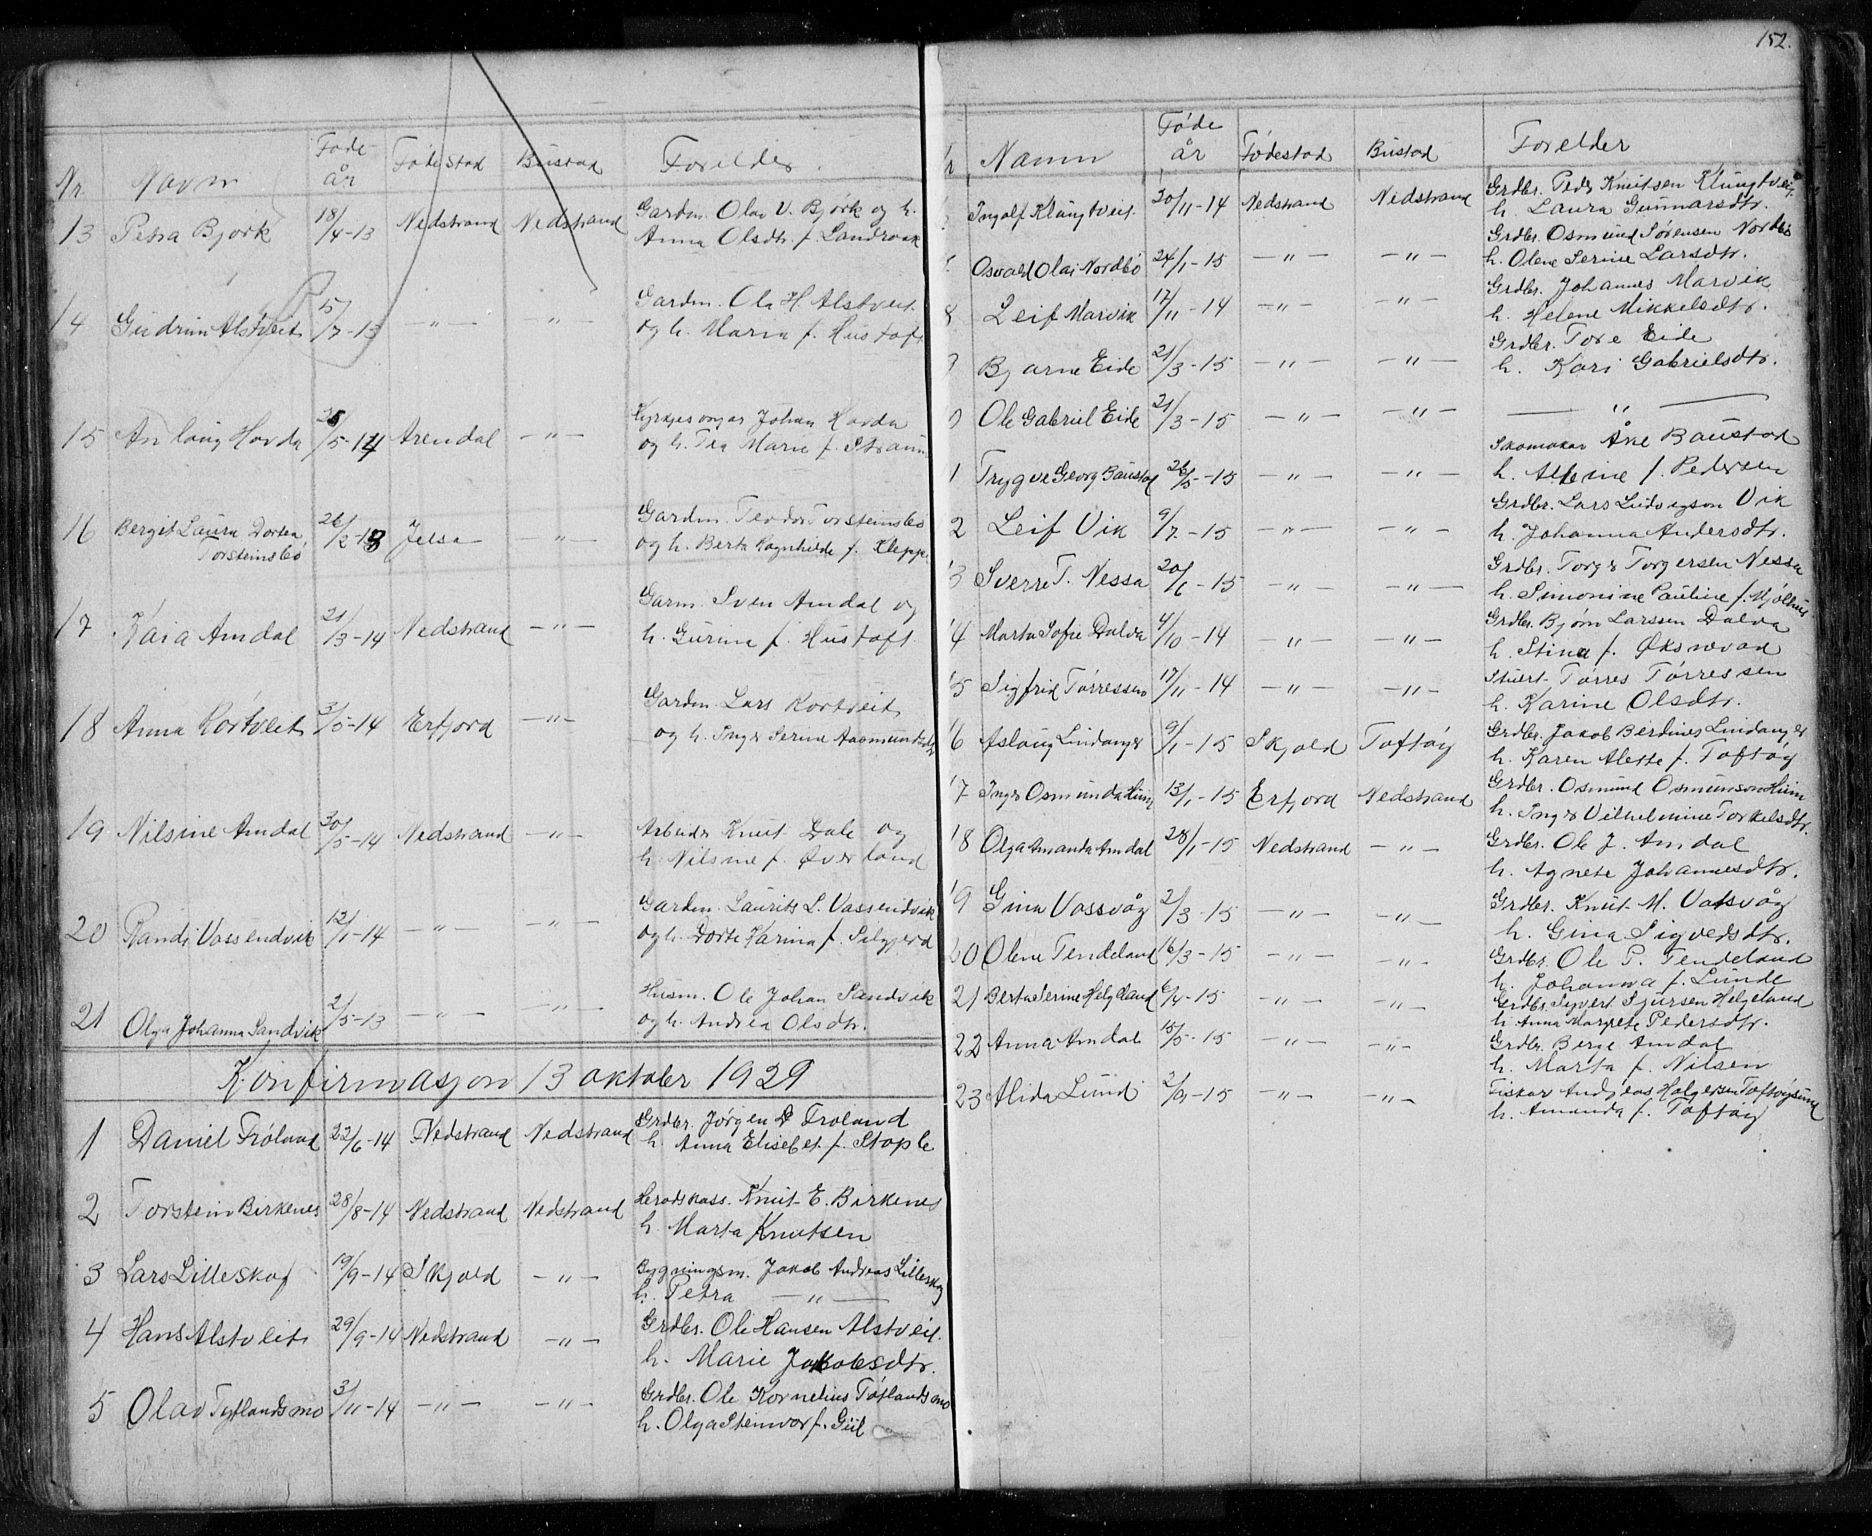 152.
Nr. Navn Føde år Fødestad Bustad Forelder.
13 Petra Bjørk 18/4-13 Nedstrand Nedstrand Gardm. Olav V. Bjørk og h.
Anna Olsdtr. f. Sandvik
14 Gudrun Alstveit 5/7-13 -"- -"- Gardm. Ola H Alstveit
og h. Maria f. Hustoft
15 Anlaug Hovda 5-14 Arendal -"- Kyrkjesongar Johan Hovda
og h. Tea Marie f. Straum
16 Bergit Laura Dortea Torsteinsbø 26/2-13 Jelsa -"- Gardm. Teodor Torsteinsbø
og h. Berta Ragnhilde f. Klepp.
17 Kaia Amdal 21/3-14 Nedstrand -"- Garm. Sven Amdal og
h. Gurina f. Hustoft
18 Anna Kortveit 3/5-14 Erfjord -"- Gardm. Lars Kortveit
og h. Inger Serine Aasmundsdtr
19 Nilsine Amdal 30/5-14 Nedstrand -"- Arbeider Knut Dale og
h. Nilsine f. Øverland
20 Randi Vassendvik 12/1-14 -"- -"- Gardm. Laurits L. Vassendvik
og h. Dorte Karina f. Selgjerd
21 Olga Johanna Sandvik 2/5-13 -"- -"- Husm. Ole Johan Sandvik
og h. Andrea Olsdtr.
Konfirmasjon 13 oktober 1929
1 Daniel Frøland 22/6-14 Nedstrand Nedstrand Grdbr. Jørgen D Froland
h. Anna Elisebet f. Stople
2 Torstein Birkenes 28/8-14 Nedstrand Nedstrand Heradskass. Knut E. Birkenes
h. Marta Knutsen
3 Lars Lilleskog 19/9-14 Skjold -"- Bygningsm. Jakob Andreas Lilleskog
h. Petra -"-
4 Hans Alstveit 29/9-14 Nedstrand -"- Grdbr. Ole Hansen Alstveit.
h. Marie Jakobsdtr.
5 Olav Tøflandsmo 3/11-14 -"- -"- Grdbr. Ole Kornelius Tøflandsmo
h. Olga Steinvor f. Giil
Namn Føde år Fødestad Bustad Forelder
Ingolf Klungtveit. 30/11-14 Nedstrand Nedstrand Grdbr. Peder Knutsen Klungtveit.
h. Laura Gunnarsdtr.
Osvald Olai Nordbø 24/1-15 -"- -"- Grdbr. Osmund Sørensen Nordbø
h. Olene Serine Larsdtr.
8 Leif Marvik 17/11-14 -"- -"- Grdbr. Johannes Marvik
h. Helene Mikkelsdtr.
9 Bjarne Eide 21/3-15 -"- -"- Grdbr. Tore Eide
h. Kari Gabrielsdtr.
0 Ole Gabriel Eide 21/3-15 -"- -"- -"-
1 Trygve Georg Baustad 26/5-15 -"- -"- Skomakar Åne Baustad
h. Alene f. Pedersen
2 Leif Vik 9/7-15 -"- -"- Grdbr. Lars Ludvigson Vik
h. Johanna Andersdtr.
13 Sverre T. Nessa 20/6-15 -"- -"- Grdbr. Torger Torgersen Nessa
h. Simonine Pauline f. Mjølhus
14 Marta Sofie Dalva 4/10-14 -"- -"- Grdbr. Bjørn Larssen Dalva
h. Stina f. Øksnevad
15 Sigfrid Tørressen 17/11-14 -"- -"- Stuert Tørres Tørressen
h. Karine Olsdtr.
16 Aslaug Lindanger 9/1-15 Skjold Toftøy Grdbr. Jakob Berdines Lindanger
h. Karen Alette f. Toftøy
17 Inger Osmunda Hiim 13/1-15 Erfjord Nedstrand Grdbr. Osmund Osmunson Hiim
h. Inger Vilhelmine Torkelsdtr.
18 Olga Amanda Amdal 28/1-15 Nedstrand -"- Grdbr. Ole J. Amdal
h. Agnete Johannesdtr.
19 Gina Vassvåg 2/3-15 -"- -"- Grdbr. Knut M. Vatsvåg
h. Gina Sigvedsdtr.
20 Olene Tendeland 16/3-15 -"- -"- Grdbr. Ole P. Tendeland
h. Johanna f. Lunde
21 Berta Serine Helgeland 6/4-15 -"- -"- Grdbr. Syvert Sjursen Helgeland
h. Anna Margrete Pedersdtr.
22 Anna Amdal 15/5-15 -"- -"- Grdbr. Berje Amdal
h. Marta f. Nilsen
23 Alida Lund 2/9-15 -"- -"- Fiskar Andreas Holgersen Toftøysund
h. Amanda f. Toftøy